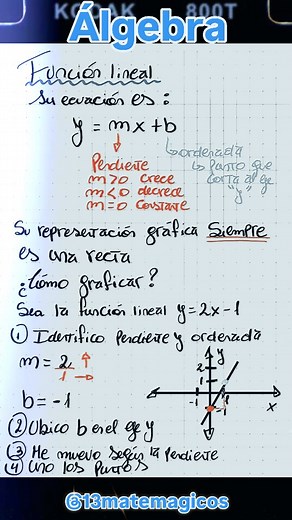 KODAK 800T
Álgebra
Función lineal
Su ecuación es:
y = mx+b
Pendiente
m>0 crece
m<0 decrece
m=0 constante
ordenada
Punto que
corta al eje
"y"
Su representación gráfica Siempre
es una recta
¿Cómo graficar?
Sea la función lineal y=2x-1
① Identifico Pendiente y ordenada
m = 2/1
b = -1
y
2
1
-1
1
-1
x
② Ubico b en el eje y
③ Me muevo según la Pendiente
④ Uno los Puntos
@13matemagicos